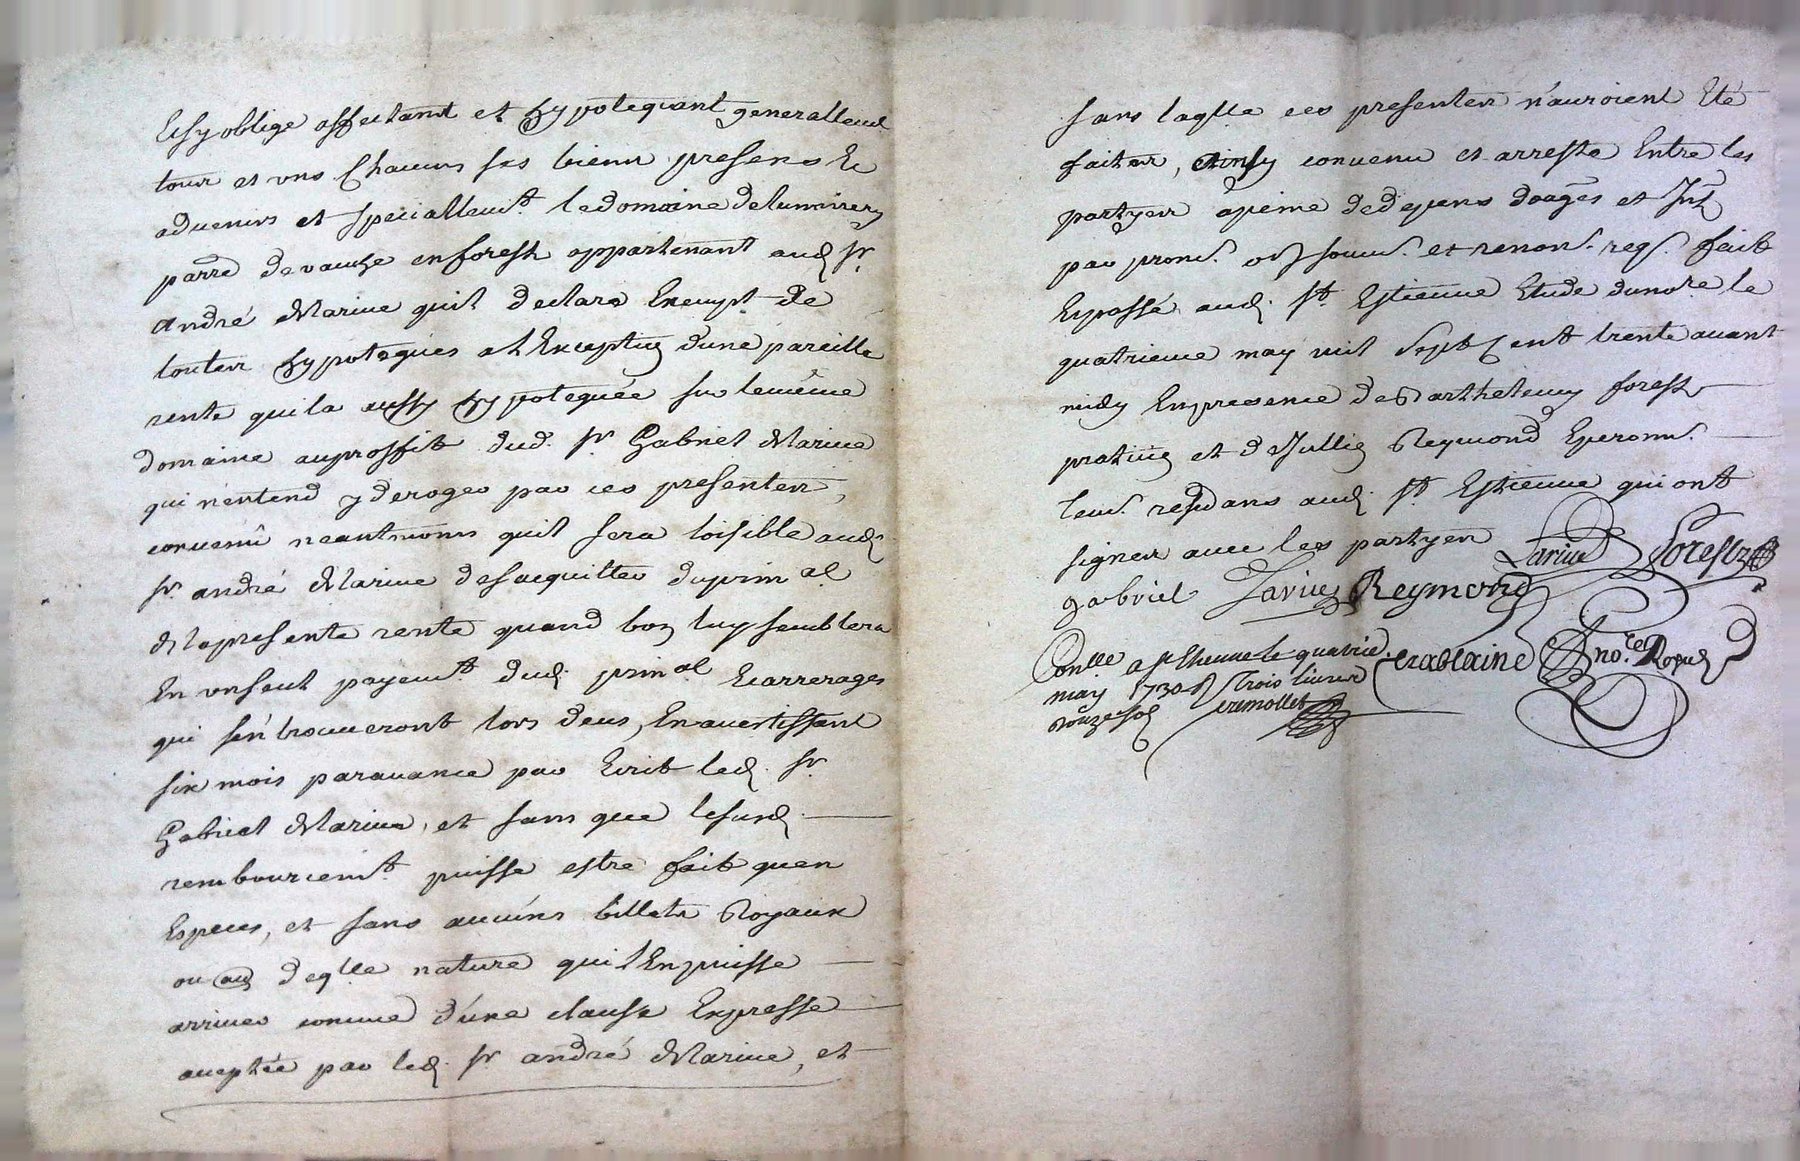 et sy oblige affectant et hypotequant generallemt
tous et uns chacuns ses biens presens et
advenirs et speciallemt. le domaine de
parre de vauche en forest appartenant aud sr.
André Marine quil declara Exempt de
touttes hypoteques a l'Exception d'une pareille
rente quil a aussy hypotequée sur le même
domaine au proffit dud. sr Gabriel Marine
qui n'entend y deroger par ces presentes,
convenû neantmoins quil sera loisible aud
sr. andré Marine de sacquitter du prinal
de la presente rente quand bon luy semblera
En un seul payemt dud. prinal Et arrerages
qui s'en trouveront lors deus, En avertissant
six mois paravance par Ecrit led. sr.
Gabriel Marine, et sans que le susd.
remboursemt. puisse estre fait quen
Especes, et sans aucuns billets Royaux
ou de qlle nature quil En puisse
arriver comme d'une clause Expresse
acceptée par led. sr andré Marine, et
sans laqlle ces presentes n'auroient Eté
faites, Ainsy convenu et arresté Entre les
partyes a peine de depens doages et Int
par proms. obl soums. et renons. reqs. fait
Et passé aud. st. Estienne Etude du nore le
quatrieme may mil sept Cent trente avant
midy En presence de Barthelemy forest
praticien et de Jullien Reymond Eperonr.
leurs. resdans aud. st. Estienne qui ont
signes avec les partyes Larive Forest
gabriel Larive Reymond
Conlle a st Etienne le quatrie. Crablaine nore Royal
may 1730 R trois livres
douze sol